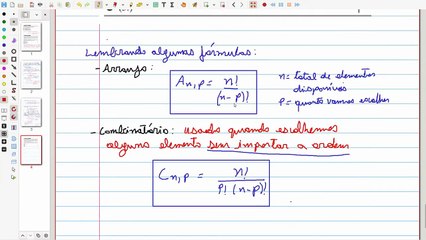 Lembrando algumas fórmulas:
- Arranjo:
A n,p = n! / (n-p)!
n = total de elementos disponíveis
p = quanto vamos escolher
- Combinatório: usado quando escolhemos
alguns elemento sem importar a ordem
C n,p = n! / p! (n-p)!